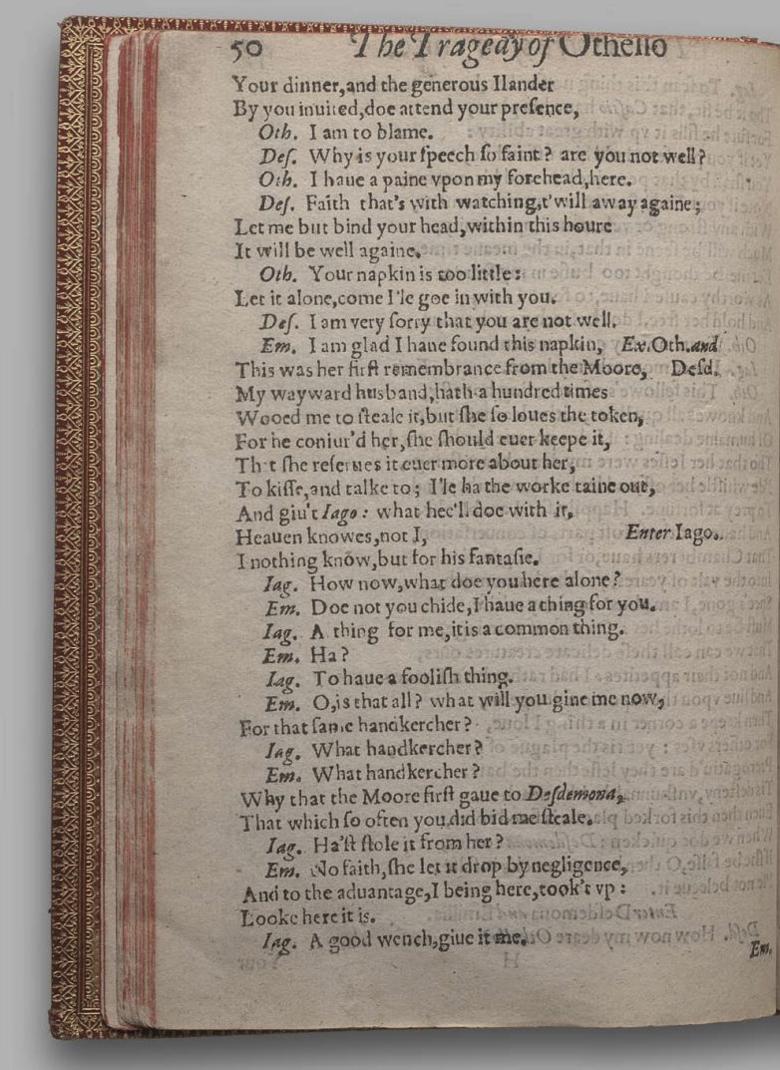 50 The Tragedy of Othello
Your dinner,and the generous Ilander
By you inuited,doe attend your preſence,
Oth. I am to blame.
Deſ. Why is your ſpeech ſo faint? are you not well?
Oth. I haue a paine vpon my forehead,here.
Deſ. Faith that's with watching,t'will away againe;
Let me but bind your head,within this houre
It will be well againe.
Oth. Your napkin is too little:
Let it alone,come I'le goe in with you.
Deſ. I am very ſorry that you are not well.
Em. I am glad I haue found this napkin, Ex.Oth.and
This was her firſt remembrance from the Moore, Deſd.
My wayward husband,hath a hundred times
Wooed me to ſteale it,but ſhe ſo loues the token,
For he coniur'd her,ſhe ſhould euer keepe it,
Th t ſhe reſerues it euer more about her,
To kiſſe,and talke to; I'le ha the worke taine out,
And giu't Iago: what hee'll doe with it,
Heauen knowes,not I, Enter Iago.
I nothing know,but for his fantaſie.
Iag. How now,what doe you here alone?
Em. Doe not you chide,I haue a thing for you.
Iag. A thing for me,it is a common thing.
Em. Ha?
Iag. To haue a fooliſh thing.
Em. O,is that all? what will you giue me now,
For that ſame handkercher?
Iag. What handkercher?
Em. What handkercher?
Why that the Moore firſt gaue to Deſdemona,
That which ſo often you did bid me ſteale.
Iag. Ha'ſt ſtole it from her?
Em. No faith,ſhe let it drop by negligence,
And to the aduantage,I being here,took't vp:
Looke here it is.
Iag. A good wench,giue it me.
Em.